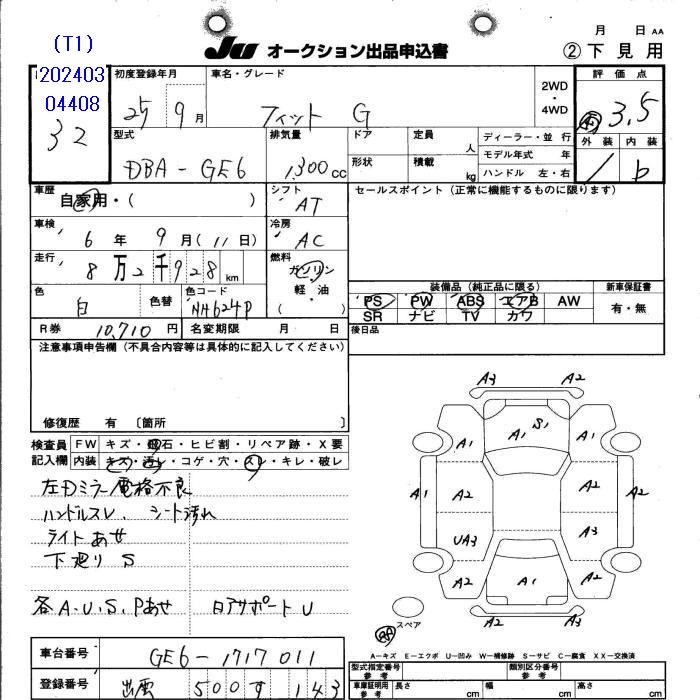 (T1)
202403
04408
32
JU オークション出品申込書
月 日 AA
② 下見用
初度登録年月
25 9 月
車名・グレード
フィット G
2WD
・
4WD
評価点
3.5
型式
DBA-GE6
排気量
1,300 cc
ドア
形状
定員 人
積載 kg
ディーラー・並行
モデル年式 年
ハンドル 左・右
外装 内装
b
車歴
自家用・( )
シフト
AT
セールスポイント(正常に機能するものに限ります)
車検
6 年 9 月(11日)
冷房
AC
走行
8万2千928 km
燃料
ガソリン
軽・油
( )
色
白
色替
色コード
NH624P
装備品(純正品に限る)
新車保証書
PS PW ABS エアB AW
SR ナビ TV カワ
有・無
R券 10,710 円
名変期限 月 日
後日品
注意事項申告欄(不具合内容等は具体的に記入してください)
修復歴 有 〔箇所 〕
検査員
記入欄
FW キズ・飛石・ヒビ割・リペア跡・X要
内装 キズ・汚レ・コゲ・穴・スレ・キレ・破レ
左Dミラー電格不良
ハンドルスレ、シート汚れ
ライトあせ
下廻り S
各A.U.S.Pあせ 日アサポートU
A3 A2
A1 A1 S1 A1
A1 A2 A2 A2
UA3 A3
A2 A1 A2
A2 A3
スペア
A-キズ E-エクボ U-凹み W-補修跡 S-サビ C-腐食 XX-交換済
車台番号
GE6-1717011
登録番号
出雲 500 す 143
型式指定番号
参考
類別区分番号
参考
車庫証明用
参考
長さ cm
幅 cm
高さ cm